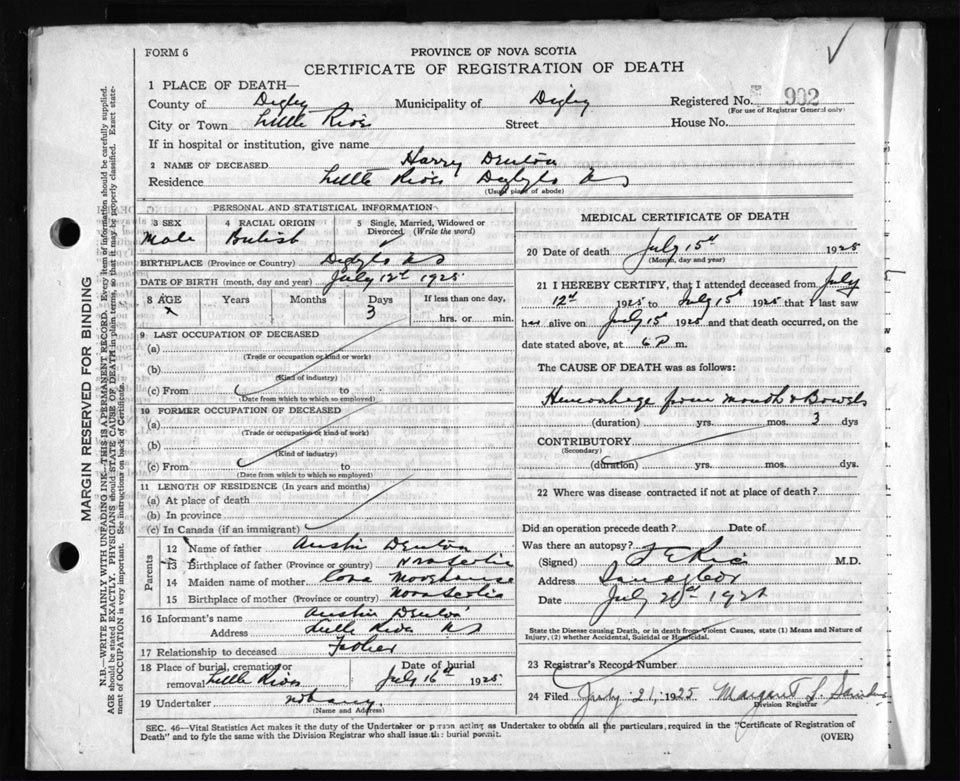 FORM 6
PROVINCE OF NOVA SCOTIA
CERTIFICATE OF REGISTRATION OF DEATH
1 PLACE OF DEATH—
County of Digby Municipality of Digby Registered No. 902
(For use of Registrar General only)
City or Town Little River Street House No.
If in hospital or institution, give name
2 NAME OF DECEASED Harry Denton
Residence Little River Digby Co NS
(Usual place of abode)
PERSONAL AND STATISTICAL INFORMATION
3 SEX 4 RACIAL ORIGIN 5 Single, Married, Widowed or
Divorced (Write the word)
Male British
BIRTHPLACE (Province or Country) Digby Co NS
DATE OF BIRTH (month, day and year) July 12th 1925
8 AGE Years Months Days If less than one day,
x 3 hrs. or min.
9 LAST OCCUPATION OF DECEASED
(a)
(Trade or occupation or kind of work)
(b)
(Kind of industry)
(c) From to
(Date from which to which so employed)
10 FORMER OCCUPATION OF DECEASED
(a)
(Trade or occupation or kind of work)
(b)
(Kind of industry)
(c) From to
(Date from which to which so employed)
11 LENGTH OF RESIDENCE (In years and months)
(a) At place of death
(b) In province
(c) In Canada (if an immigrant)
Parents
12 Name of father Austin Denton
13 Birthplace of father (Province or country) Nova Scotia
14 Maiden name of mother Cora Moorehouse
15 Birthplace of mother (Province or country) Nova Scotia
16 Informant's name Austin Denton
Address Little River NS
17 Relationship to deceased Father
18 Place of burial, cremation or Date of burial
removal Little River July 16th 1925
19 Undertaker not any
(Name and Address)
MEDICAL CERTIFICATE OF DEATH
20 Date of death July 15th 1925
(Month, day and year)
21 I HEREBY CERTIFY, that I attended deceased from July
12th 1925 to July 15th 1925 that I last saw
him alive on July 15th 1925 and that death occurred, on the
date stated above, at 6 P m.
The CAUSE OF DEATH was as follows:
Hemorrhage from mouth & Bowels
(duration) yrs. mos. 3 dys
CONTRIBUTORY
(Secondary)
(duration) yrs. mos. dys.
22 Where was disease contracted if not at place of death?
Did an operation precede death? Date of
Was there an autopsy?
(Signed) F E Rice M.D.
Address Sandy Cove
Date July 20th 1925
State the Disease causing Death, or in death from Violent Causes, state (1) Means and Nature of
Injury, (2) whether Accidental, Suicidal or Homicidal.
23 Registrar's Record Number
24 Filed July 21, 1925 Margaret L.
Division Registrar
SEC. 46—Vital Statistics Act makes it the duty of the Undertaker or person acting as Undertaker to obtain all the particulars, required in the "Certificate of Registration of
Death" and to fyle the same with the Division Registrar who shall issue the burial permit. (OVER)
MARGIN RESERVED FOR BINDING
N.B.—WRITE PLAINLY WITH UNFADING INK—THIS IS A PERMANENT RECORD. Every item of information should be carefully supplied.
AGE should be stated EXACTLY. PHYSICIANS should STATE CAUSE OF DEATH in plain terms, so that it may be properly classified. Exact state-
ment of OCCUPATION is very important. See instructions on back of Certificate.